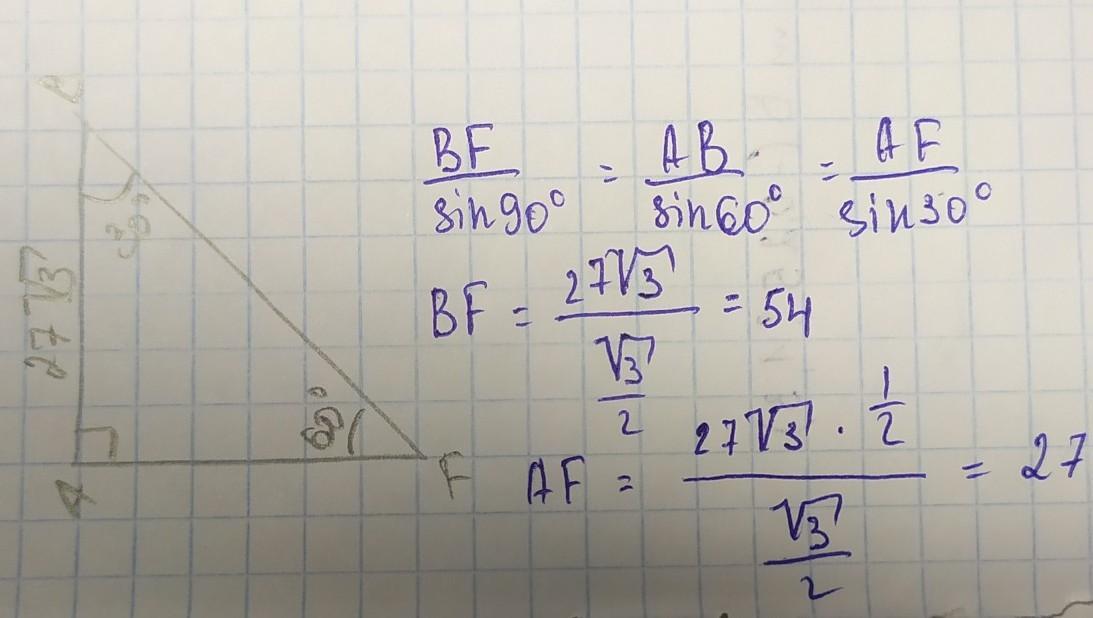 B
30°
27√3
60°
A
F
BF/sin90° = AB/sin60° = AF/sin30°
BF = 27√3/(√3/2) = 54
AF = (27√3 · 1/2)/(√3/2) = 27